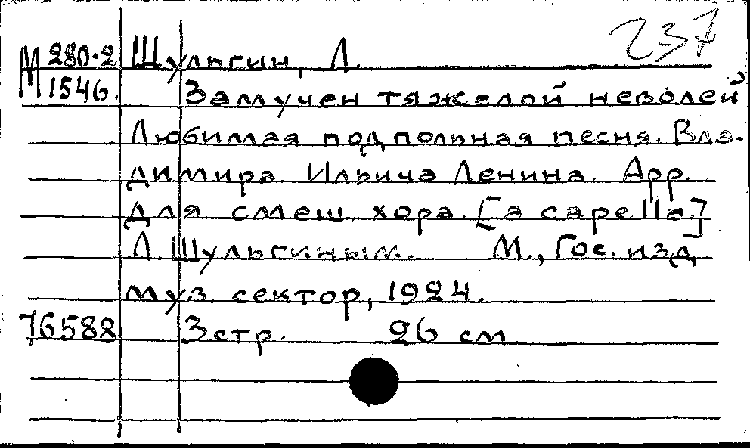 237
М 280-2 Шульгин, Л.
1546. Замучен тяжелой неволей
Любимая подпольная песня. Вла-
димира Ильича Ленина. Арр.
для смеш. хора. [a capella]
Л. Шульгиным. М., Гос. изд
муз. сектор, 1924.
76588 3 стр. 26 см